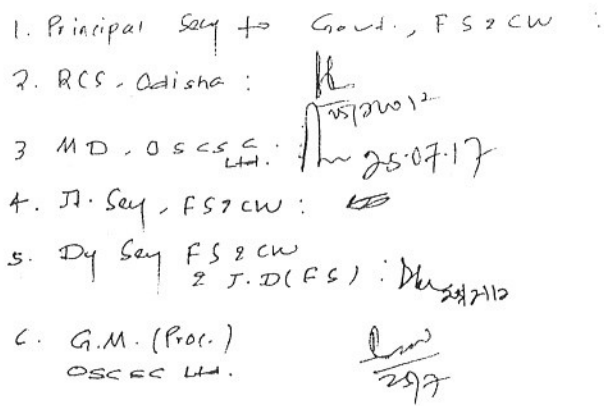 1. Principal Secy to Govt., FS & CW :
2. RCS, Odisha :
3 MD, OSCSC Ltd. : 25.07.17
4. Jt. Secy, FS & CW :
5. Dy Secy FS & CW
& J.D (FS) :
6. G.M. (Proc.)
OSCSC Ltd.
25/7